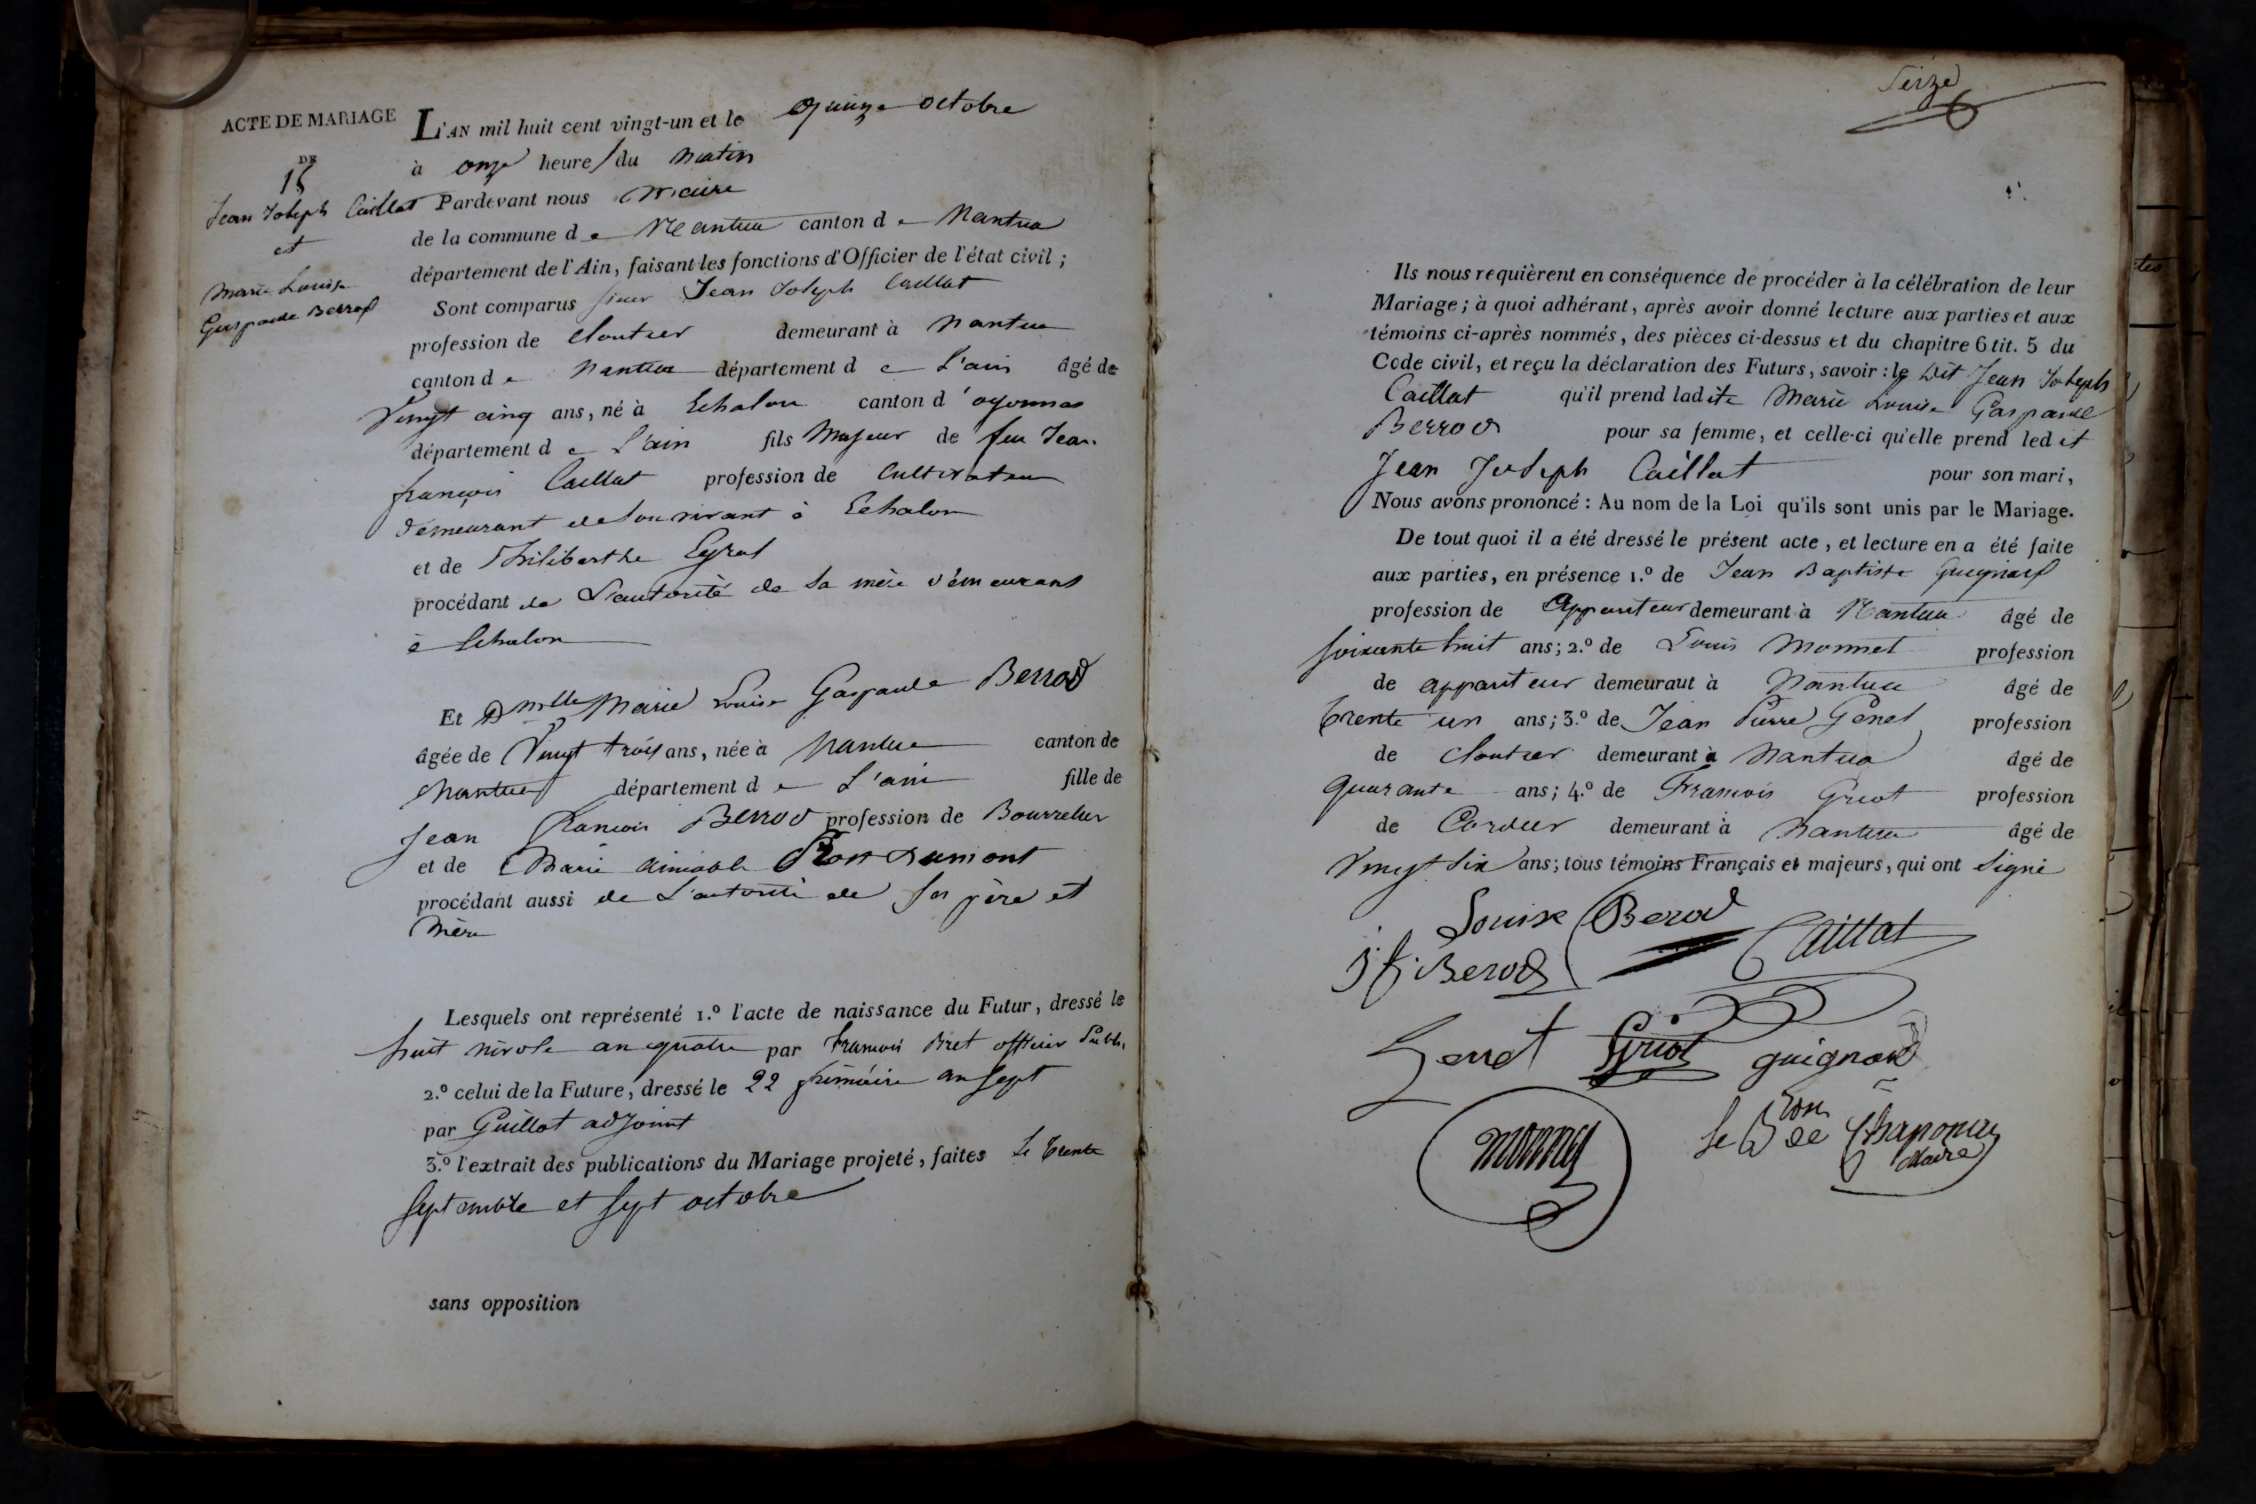 ACTE DE MARIAGE
DE
15
Jean Joseph Caillat
et
Marie Louise
Gasparde Berrod
L'AN mil huit cent vingt-un et le quinze octobre
à onze heures du matin
Pardevant nous maire
de la commune de Nantua canton de Nantua
département de l'Ain, faisant les fonctions d'Officier de l'état civil ;
Sont comparus sieur Jean Joseph Caillat
profession de cloutier demeurant à Nantua
canton de Nantua département de L'ain âgé de
Vingt cinq ans, né à Echalon canton d'oyonnas
département de L'ain fils Majeur de feu Jean
françois Caillat profession de Cultivateur
demeurant de son vivant à Echalon
et de Philiberthe
procédant de L'autorité de sa mère démeurant
à Echalon
Et Dmlle Marie Louise Gasparde Berrod
âgée de Vingt trois ans, née à Nantua canton de
Nantua département de L'ain fille de
Jean francois Berrod profession de Bourrelier
et de Marie aimable
procédant aussi de L'autorité de ses père et
Mère
Lesquels ont représenté 1.º l'acte de naissance du Futur, dressé le
huit nivose an quatre par francois Bret officier Public
2.º celui de la Future, dressé le 22 frimaire an sept
par Guillot adjoint
3.º l'extrait des publications du Mariage projeté, faites le trente
septembre et sept octobre
sans opposition
Seize
Ils nous requièrent en conséquence de procéder à la célébration de leur
Mariage ; à quoi adhérant, après avoir donné lecture aux parties et aux
témoins ci-après nommés, des pièces ci-dessus et du chapitre 6 tit. 5 du
Code civil, et reçu la déclaration des Futurs, savoir : le dit Jean Joseph
Caillat qu'il prend ladite Marie Louise Gasparde
Berrod pour sa femme, et celle-ci qu'elle prend ledit
Jean Joseph Caillat pour son mari,
Nous avons prononcé : Au nom de la Loi qu'ils sont unis par le Mariage.
De tout quoi il a été dressé le présent acte, et lecture en a été faite
aux parties, en présence 1.º de Jean Baptiste Guignard
profession de Appariteur demeurant à Nantua âgé de
soixante huit ans ; 2.º de Louis Monnet profession
de appariteur demeurant à Nantua âgé de
trente un ans ; 3.º de Jean Pierre Genet profession
de Cloutier demeurant à Nantua âgé de
quarante ans ; 4.º de Francois Griot profession
de Cordier demeurant à Nantua âgé de
Vingt six ans ; tous témoins Français et majeurs, qui ont signé
Louise Berod
j f Berod Caillat
Genet Griot guignard
monnet le Bon de Chaponay
Maire